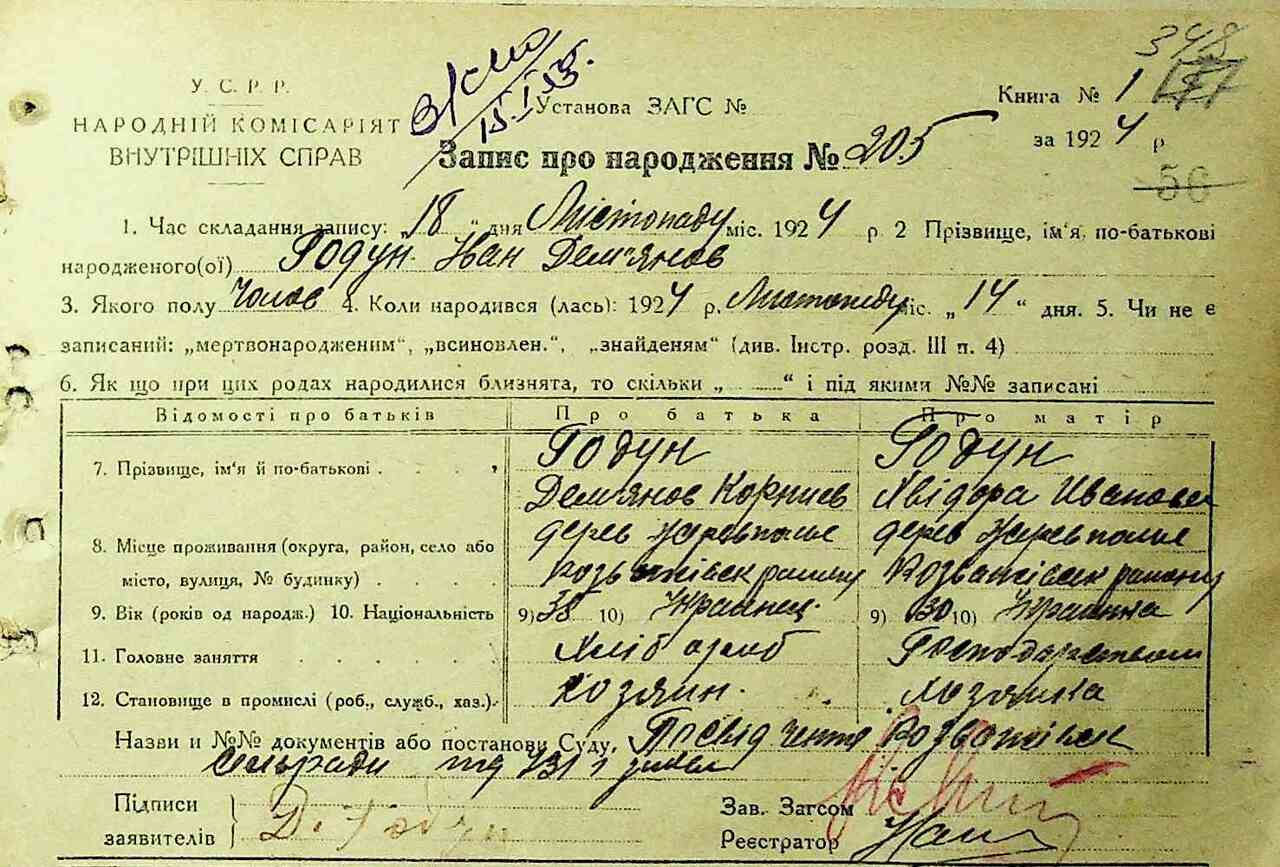 348
15.I.53.
У. С. Р. Р.
НАРОДНІЙ КОМІСАРІЯТ
ВНУТРІШНІХ СПРАВ
Установа ЗАГС №
Книга № 1
за 1924 р
Запис про народження № 205
56
1. Час складання запису: „18“ дня Листопаду міс. 1924 р. 2 Прізвище, ім'я, по-батькові
народженого(ої) Годун Иван Дем'янов
3. Якого полу Чолов 4. Коли народився (лась): 1924 р. Листопаду міс. „14“ дня. 5. Чи не є
записаний: „мертвонародженим“, „всиновлен.“, „знайденям“ (див. Інстр. розд. III п. 4)
6. Як що при цих родах народилися близнята, то скільки „ “ і під якими №№ записані
Відомості про батьків Про батька Про матір
7. Прізвище, ім'я й по-батькові Годун Годун
Дем'янов Корниев Хвідора Иванова
8. Місце проживання (округа, район, село або дерев дерев
місто, вулиця, № будинку) Розважівск району Розважівск району
9. Вік (років од народж.) 10. Національність 9) 38 10) Украинец. 9) 30 10) Украинка
11. Головне заняття Хліб Господарством
12. Становище в промислі (роб., служб., хаз.). Хозяин. Хозяйка
Назви и №№ документів або постанови Суду, Посвідчення Розважівск
Сільради
Підписи
заявителів Д. Годун
Зав. Загсом
Реєстратор